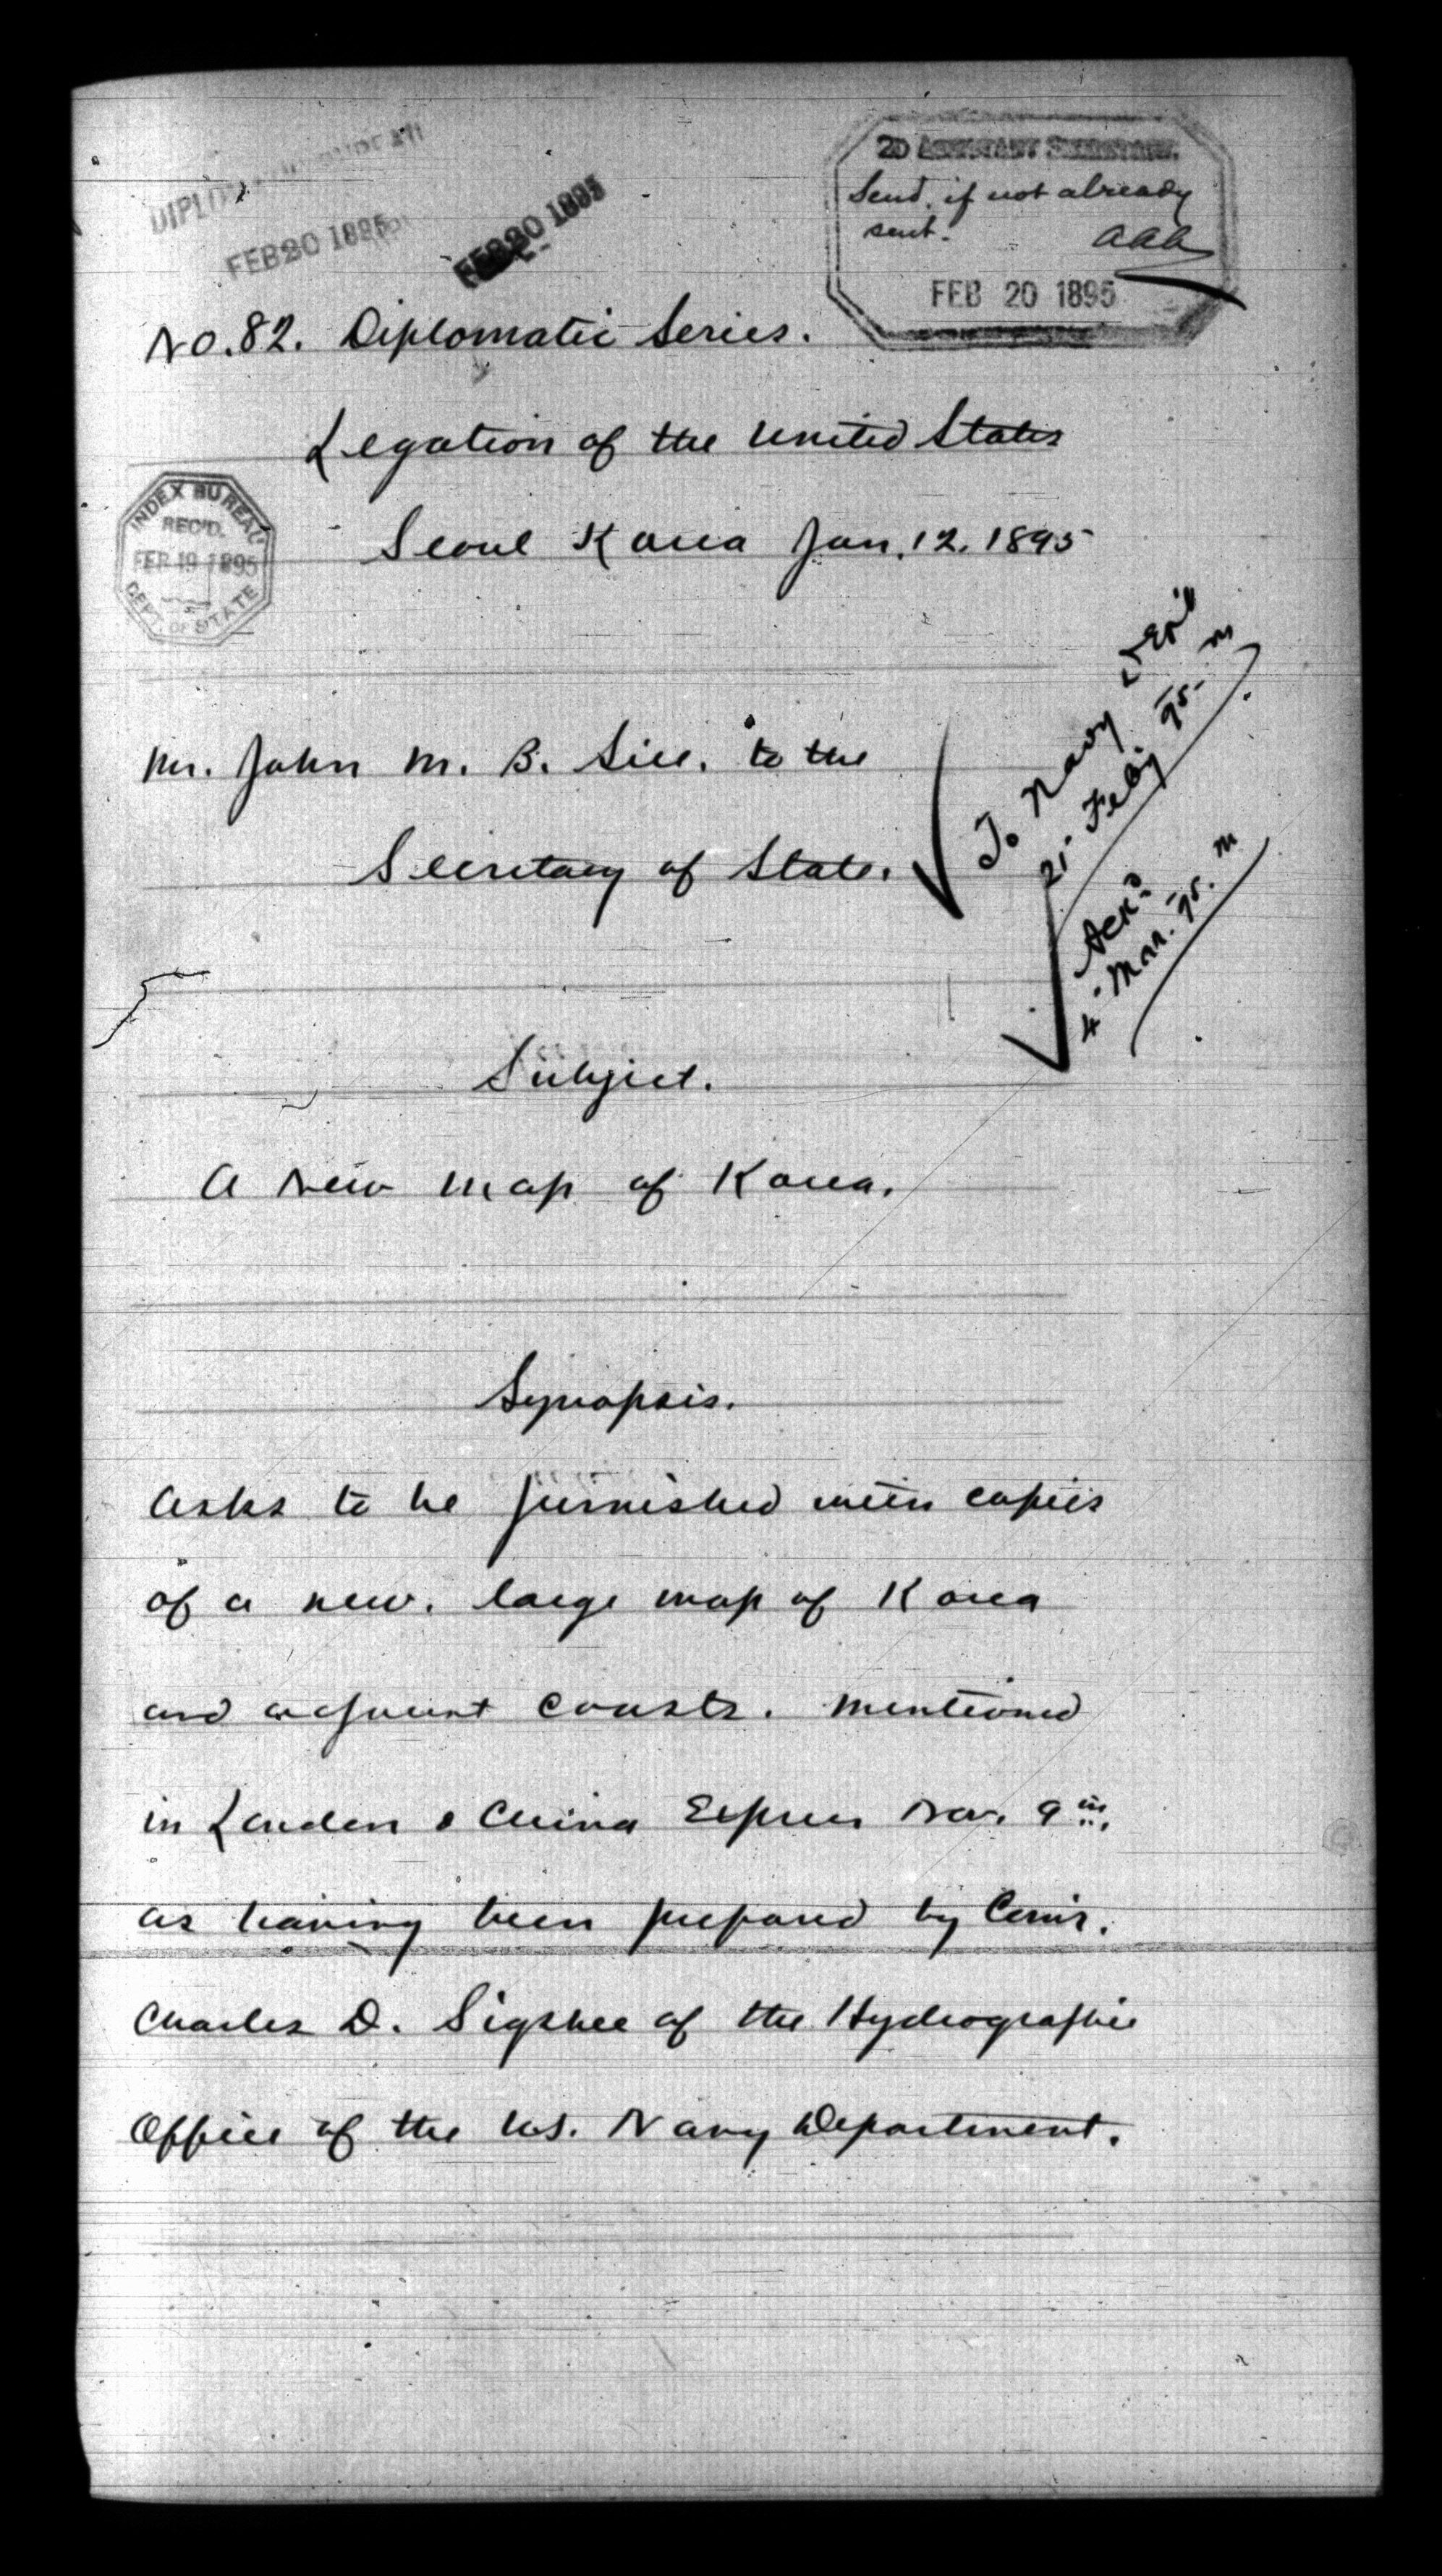 DIPLOMATIC BUREAU
FEB 20 1895
FEB 20 1895
2D ASSISTANT SECRETARY.
Send, if not already
sent.
AAA
FEB 20 1895
No. 82. Diplomatic Series.
Legation of the United States
INDEX BUREAU
REC'D.
FEB 19 1895
DEPT. OF STATE
Seoul Korea Jan. 12. 1895
Mr. John M. B. Sill. to the
Secretary of State.
To Navy
21 Feby 95 - m
Ackd
4 - Mar. 95. m
Subject.
A New Map of Korea.
Synopsis.
Asks to be furnished with copies
of a new. large map of Korea
and adjacent coasts. mentioned
in London & China Express Nov. 9th.
as having been prepared by Comr.
Charles D. Sigsbee of the Hydrographic
Office of the U.S. Navy Department.